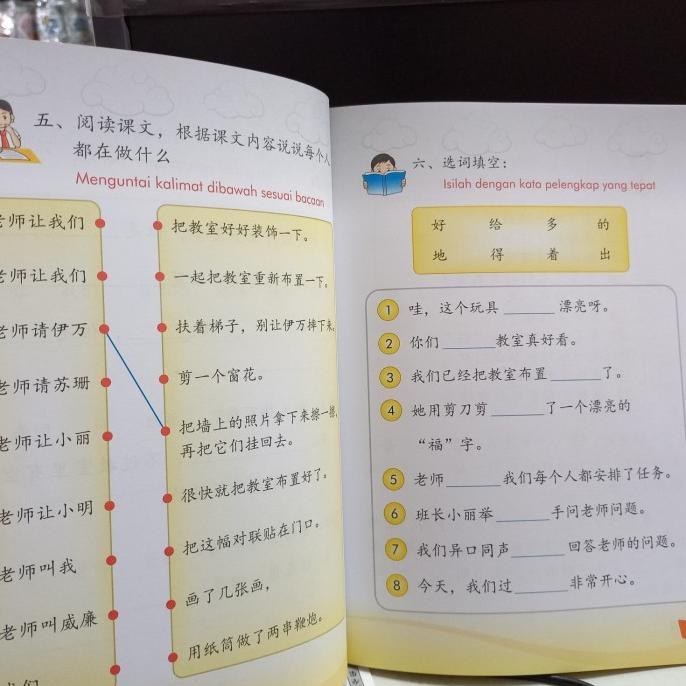 五、阅读课文，根据课文内容说说每个人
都在做什么
Menguntai kalimat dibawah sesuai bacaan
老师让我们
老师让我们
老师请伊万
老师请苏珊
老师让小丽
老师让小明
老师叫我
老师叫威廉
我们
把教室好好装饰一下。
一起把教室重新布置一下。
扶着梯子，别让伊万摔下来。
剪一个窗花。
把墙上的照片拿下来擦一擦，
再把它们挂回去。
很快就把教室布置好了。
把这幅对联贴在门口。
画了几张画，
用纸筒做了两串鞭炮。
六、选词填空：
Isilah dengan kata pelengkap yang tepat
好 给 多 的
地 得 着 出
1 哇，这个玩具______漂亮呀。
2 你们______教室真好看。
3 我们已经把教室布置______了。
4 她用剪刀剪______了一个漂亮的
“福”字。
5 老师______我们每个人都安排了任务。
6 班长小丽举______手问老师问题。
7 我们异口同声______回答老师的问题。
8 今天，我们过______非常开心。